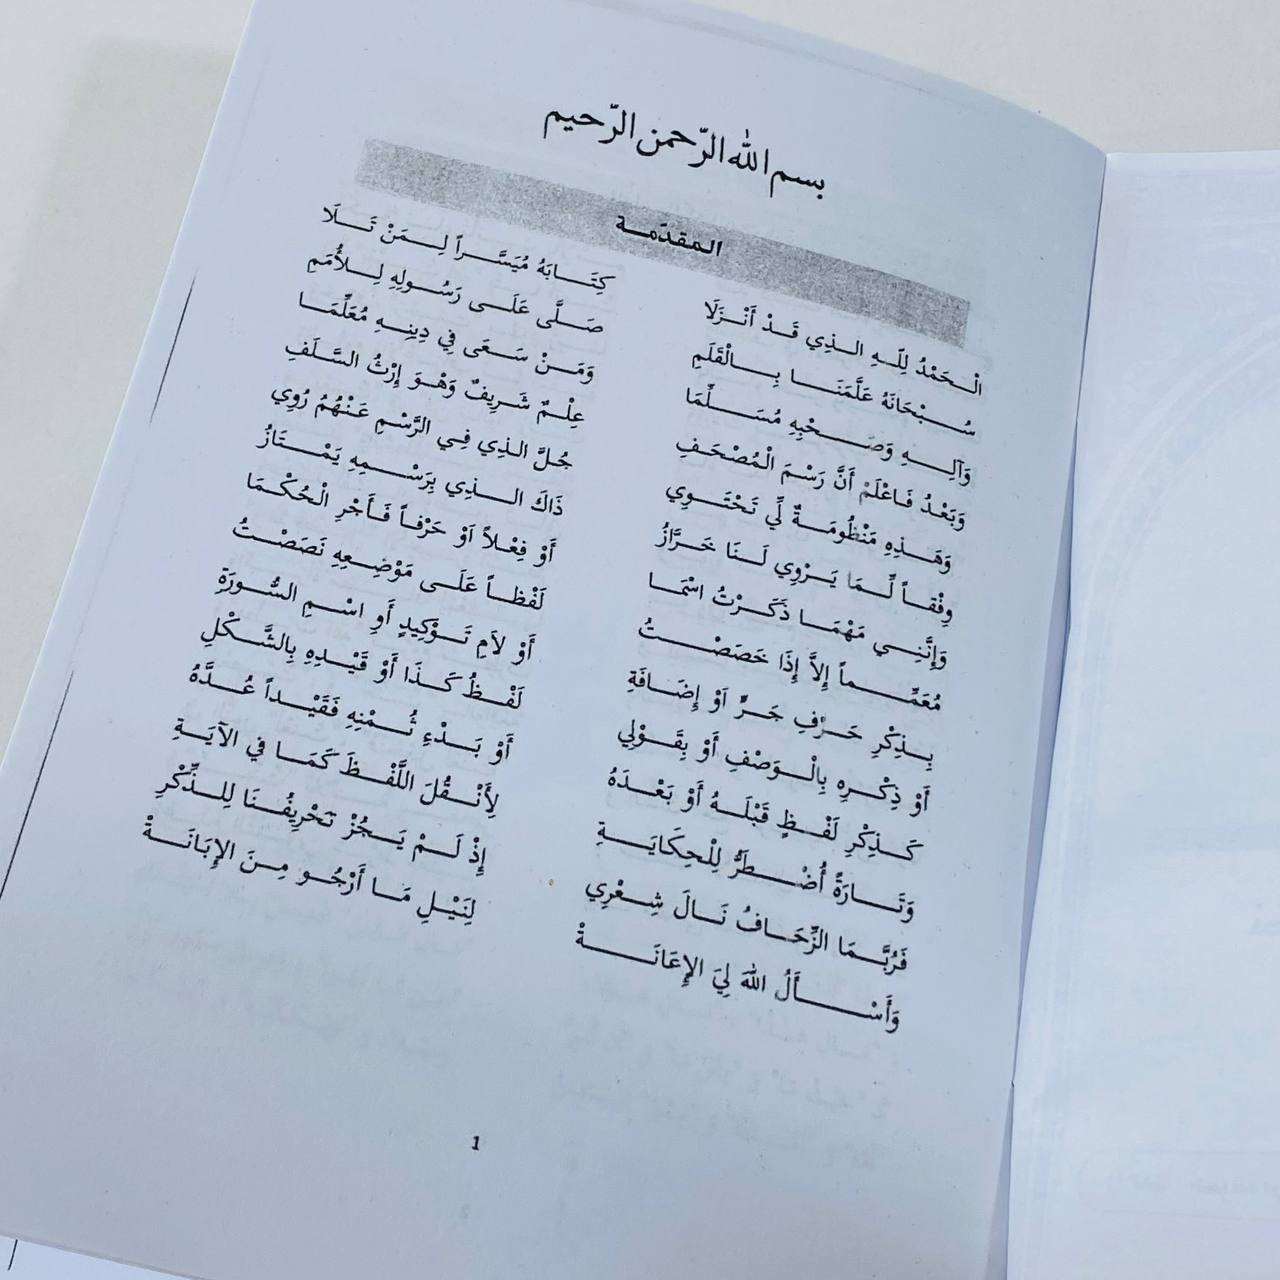 بسم الله الرّحمن الرّحيم
المقدّمة
الْـحَمْدُ لِلَّـهِ الـذِي قَـدْ أَنْـزَلَا كِتَـابَهُ مُيَسَّـراً لِـمَنْ تَـلَا
سُـبْحَانَهُ عَلَّمَنَـا بِـالْقَلَمِ صَـلَّى عَلَـى رَسُـولِهِ لِـلأُمَمِ
وَآلِـهِ وَصَـحْبِهِ مُسَـلِّمَا وَمَـنْ سَـعَى فِي دِينِـهِ مُعَلِّمَـا
وَبَعْدُ فَـاعْلَمْ أَنَّ رَسْمَ الْمُصْحَفِ عِلْـمٌ شَـرِيفٌ وَهْـوَ إِرْثُ السَّـلَفِ
وَهَـذِهِ مَنْظُومَـةٌ لِّي تَحْتَـوِي جُـلَّ الذِي فِـي الرَّسْمِ عَـنْهُمُ رُوِي
وِفْقـاً لِّـمَا يَـرْوِي لَـنَا خَـرَّازُ ذَاكَ الـذِي بِرَسْـمِهِ يَمْـتَازُ
وَإِنَّنِـي مَهْمَـا ذَكَـرْتُ اسْمَـا أَوْ فِعْـلاً اَوْ حَرْفـاً فَـأَجْرِ الْحُكْـمَا
مُعَمِّـماً إِلاَّ إِذَا خَصَصْـتُ لَفْظـاً عَلَـى مَوْضِـعِهِ نَصَصْـتُ
بِـذِكْرِ حَـرْفِ جَـرٍّ اَوْ إِضَـافَةِ أَوْ لاَمِ تَـوْكِيدٍ أَوِ اسْـمِ السُّـورَةِ
أَوْ ذِكْـرِهِ بِالْـوَصْفِ أَوْ بِقَـوْلِي لَفْـظُ كَـذَا أَوْ قَيْـدِهِ بِالشَّـكْلِ
كَـذِكْرِ لَفْـظٍ قَبْلَـهُ أَوْ بَعْـدَهُ أَوْ بَـدْءِ ثُـمْنِهِ فَقَيْـداً عُـدَّهُ
وَتَـارَةً أُضْـطَرُّ لِلْحِكَايَـةِ لِأَنْـقُلَ اللَّفْـظَ كَمَـا فِي الآيَـةِ
فَرُبَّـمَا الزِّحَـافُ نَـالَ شِـعْرِي إِذْ لَـمْ يَـجُزْ تَحْرِيفُـنَا لِلـذِّكْرِ
وَأَسْـأَلُ اللهَ لِيَ الإِعَانَـةْ لِنَيْـلِ مَـا أَرْجُـو مِـنَ الإِبَانَـةْ
1